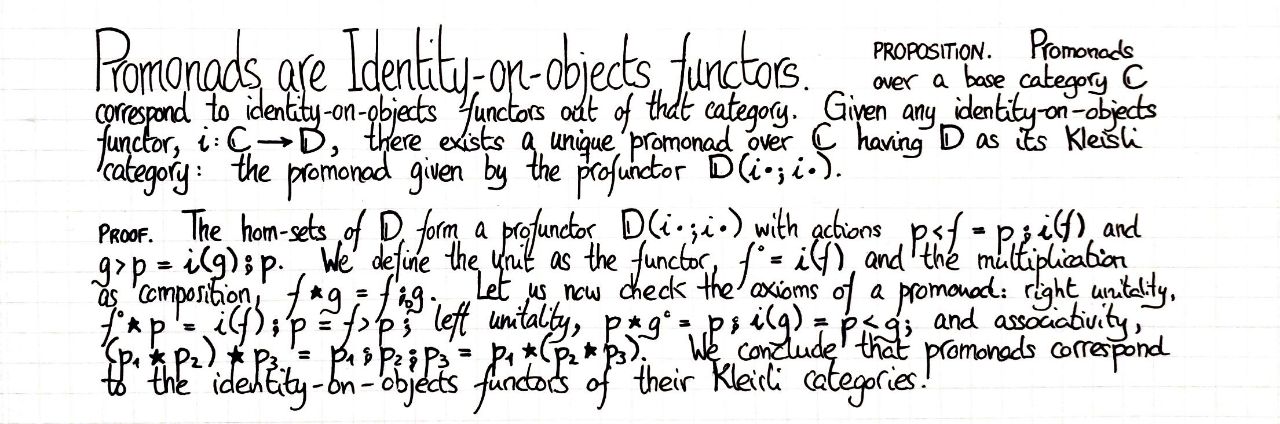 Promonads are Identity-on-objects functors. PROPOSITION. Promonads
over a base category ℂ
correspond to identity-on-objects functors out of that category. Given any identity-on-objects
functor, i: ℂ → 𝔻, there exists a unique promonad over ℂ having 𝔻 as its Kleisli
category: the promonad given by the profunctor 𝔻(i•; i•).
PROOF. The hom-sets of 𝔻 form a profunctor 𝔻(i•; i•) with actions p < f = p ⨾ i(f) and
g > p = i(g) ⨾ p. We define the unit as the functor, f° = i(f) and the multiplication
as composition, f ★ g = f ⨾ g. Let us now check the axioms of a promonad: right unitality,
f° ★ p = i(f) ⨾ p = f > p; left unitality, p ★ g° = p ⨾ i(g) = p < g; and associativity,
(p₁ ★ p₂) ★ p₃ = p₁ ⨾ p₂ ⨾ p₃ = p₁ ★ (p₂ ★ p₃). We conclude that promonads correspond
to the identity-on-objects functors of their Kleisli categories.